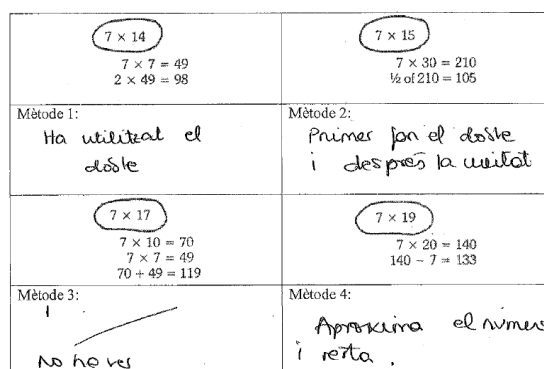 7 × 14
7 × 7 = 49
2 × 49 = 98
7 × 15
7 × 30 = 210
½ of 210 = 105
Mètode 1:
Ha utilitzat el
doble
Mètode 2:
Primer fan el doble
i després la meitat
7 × 17
7 × 10 = 70
7 × 7 = 49
70 + 49 = 119
7 × 19
7 × 20 = 140
140 − 7 = 133
Mètode 3:
No
Mètode 4:
Aproxima el número
i resta.